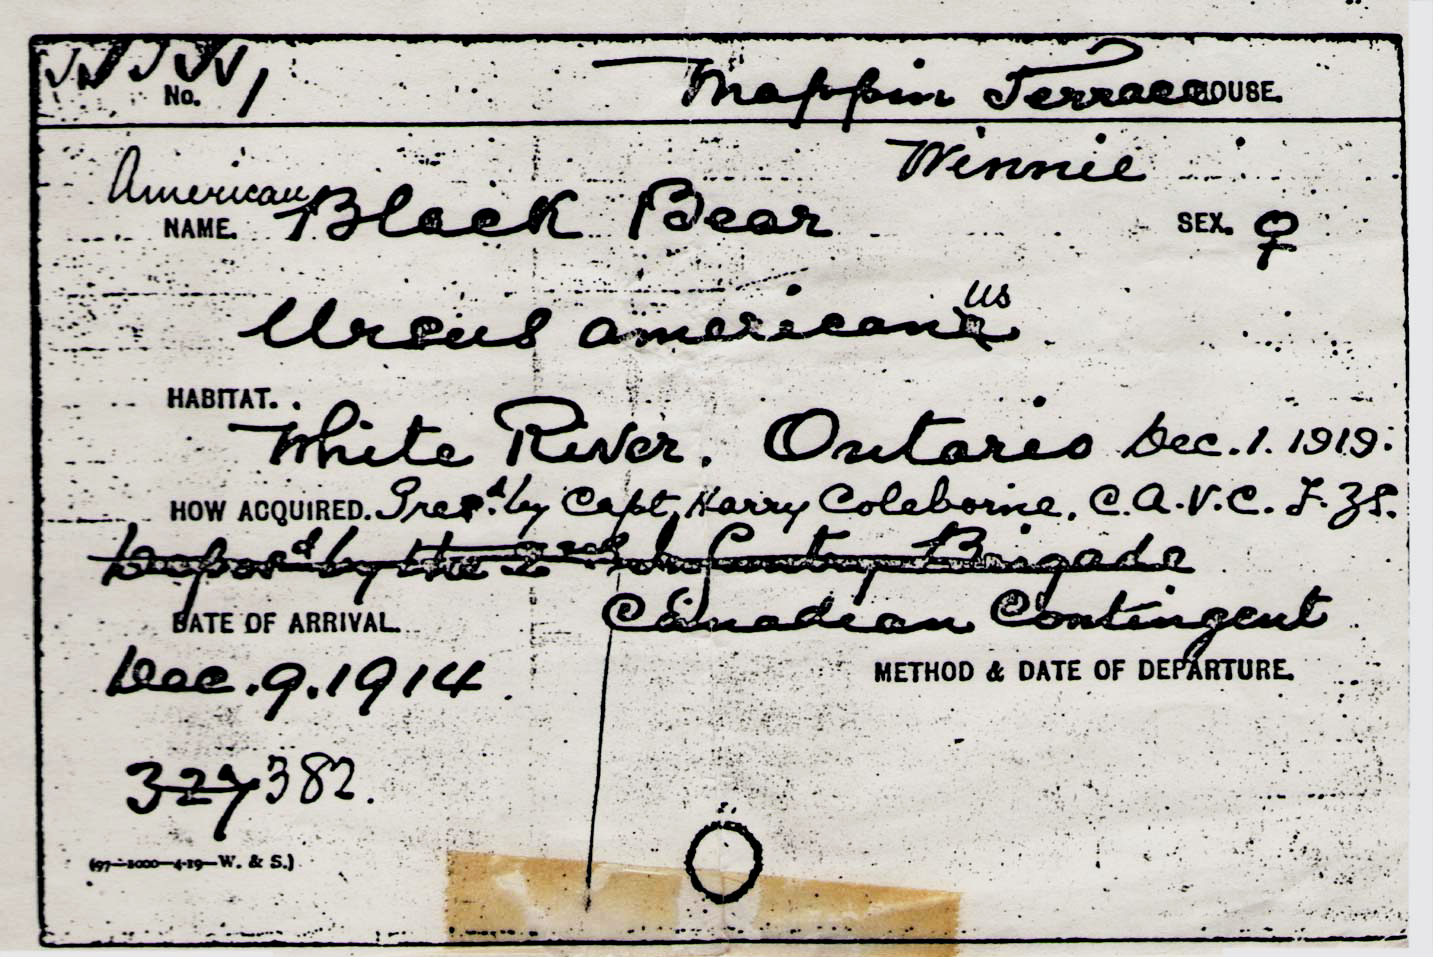 No.
Mappin Terrace HOUSE.
Winnie
American
NAME. Black Bear SEX. ♀
us
Ursus americana
HABITAT.
White River. Ontario Dec. 1. 1919.
HOW ACQUIRED. Pres.d by Capt. Harry Coleborne. C.A.V.C. F.Z.S.
Depos.d by the 2nd Infantry Brigade
DATE OF ARRIVAL. Canadian Contingent
Dec. 9. 1914. METHOD & DATE OF DEPARTURE.
327 382.
(97—1000—4-19—W. & S.)